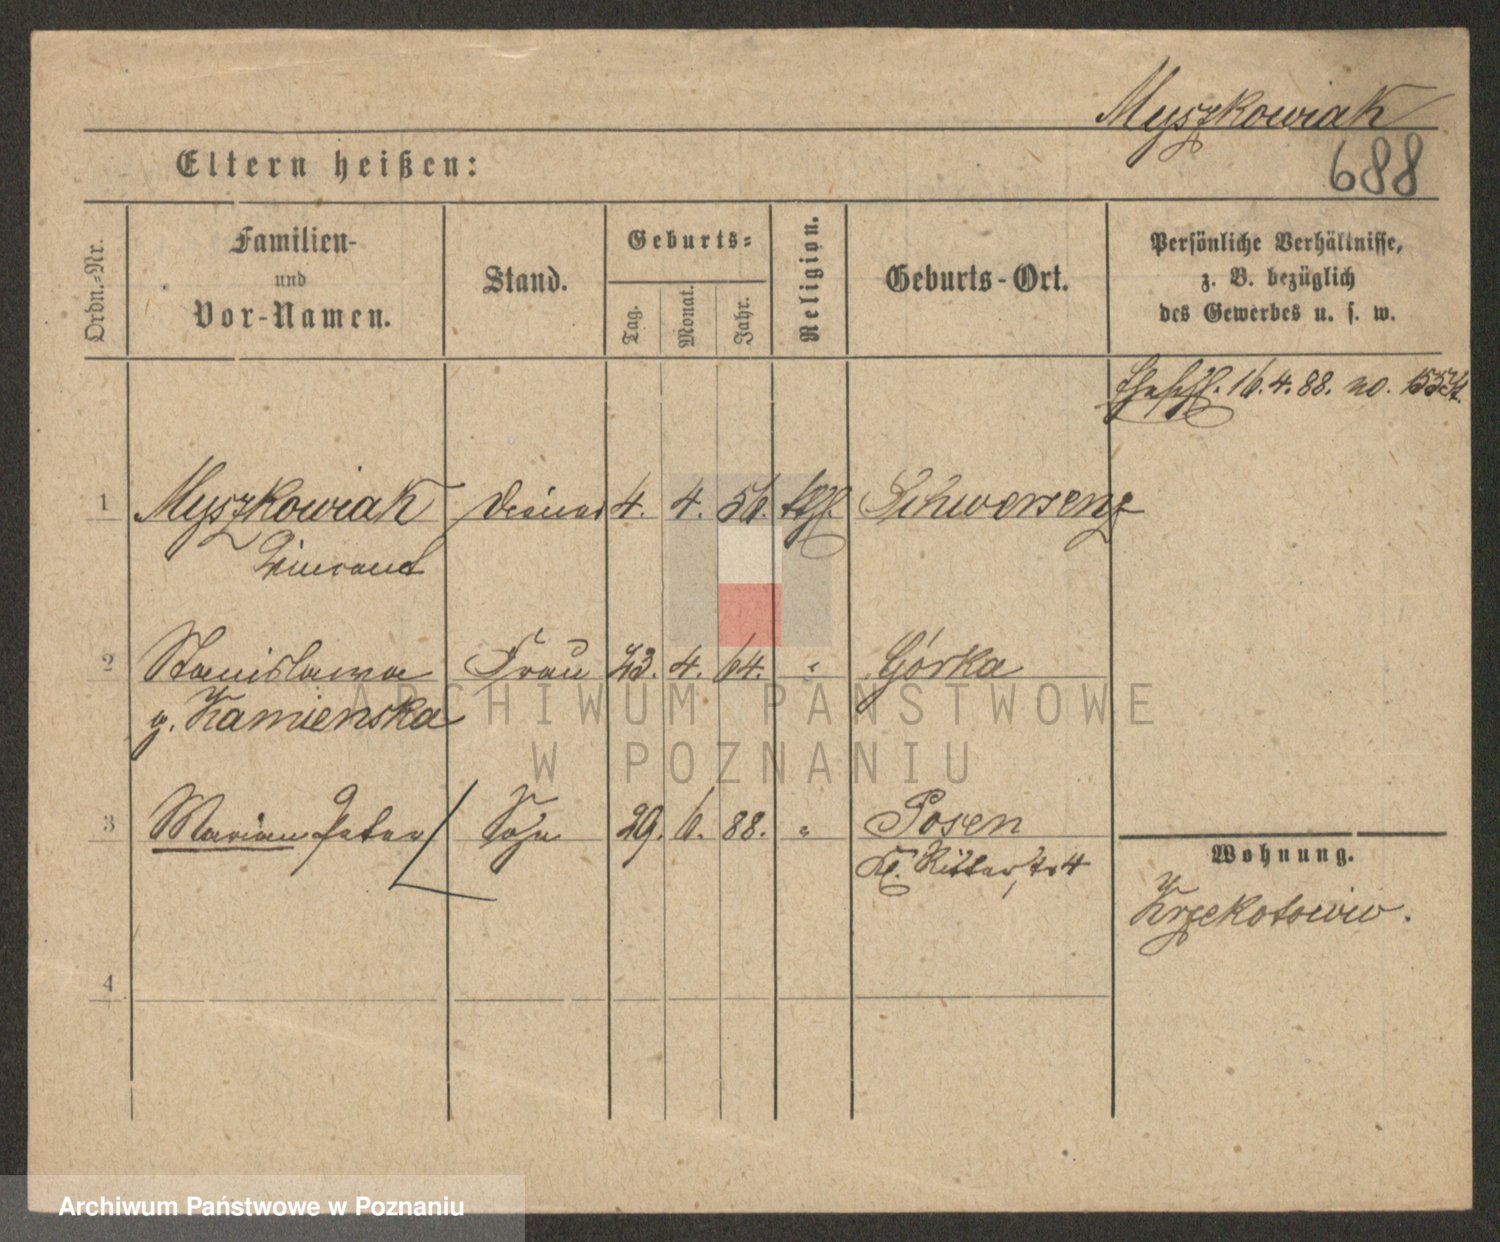 Myszkowiak
688
Eltern heißen:
Ordn.-Nr.
Familien-
und
Vor-Namen.
Stand.
Geburts-
Tag.
Monat.
Jahr.
Religion.
Geburts-Ort.
Persönliche Verhältnisse,
z. B. bezüglich
des Gewerbes u. s. w.
16. 4. 88. no.
1 Myszkowiak Diener 4. 4. 56. kth. Schwersenz
Vincent
2 Stanislawa Frau 23. 4. 64. " Górka
g. Kamienska
3 Marian Peter Sohn 29. 6. 88. " Posen
Kl. Ritterstr 4
Wohnung.
4
ARCHIWUM PAŃSTWOWE
W POZNANIU
Archiwum Państwowe w Poznaniu